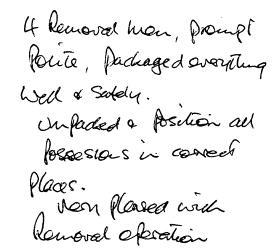 4 Removal men, prompt
Polite, packaged everything
well & safely.
unpacked & position all
possesions in correct
places.
very pleased with
Removal operation